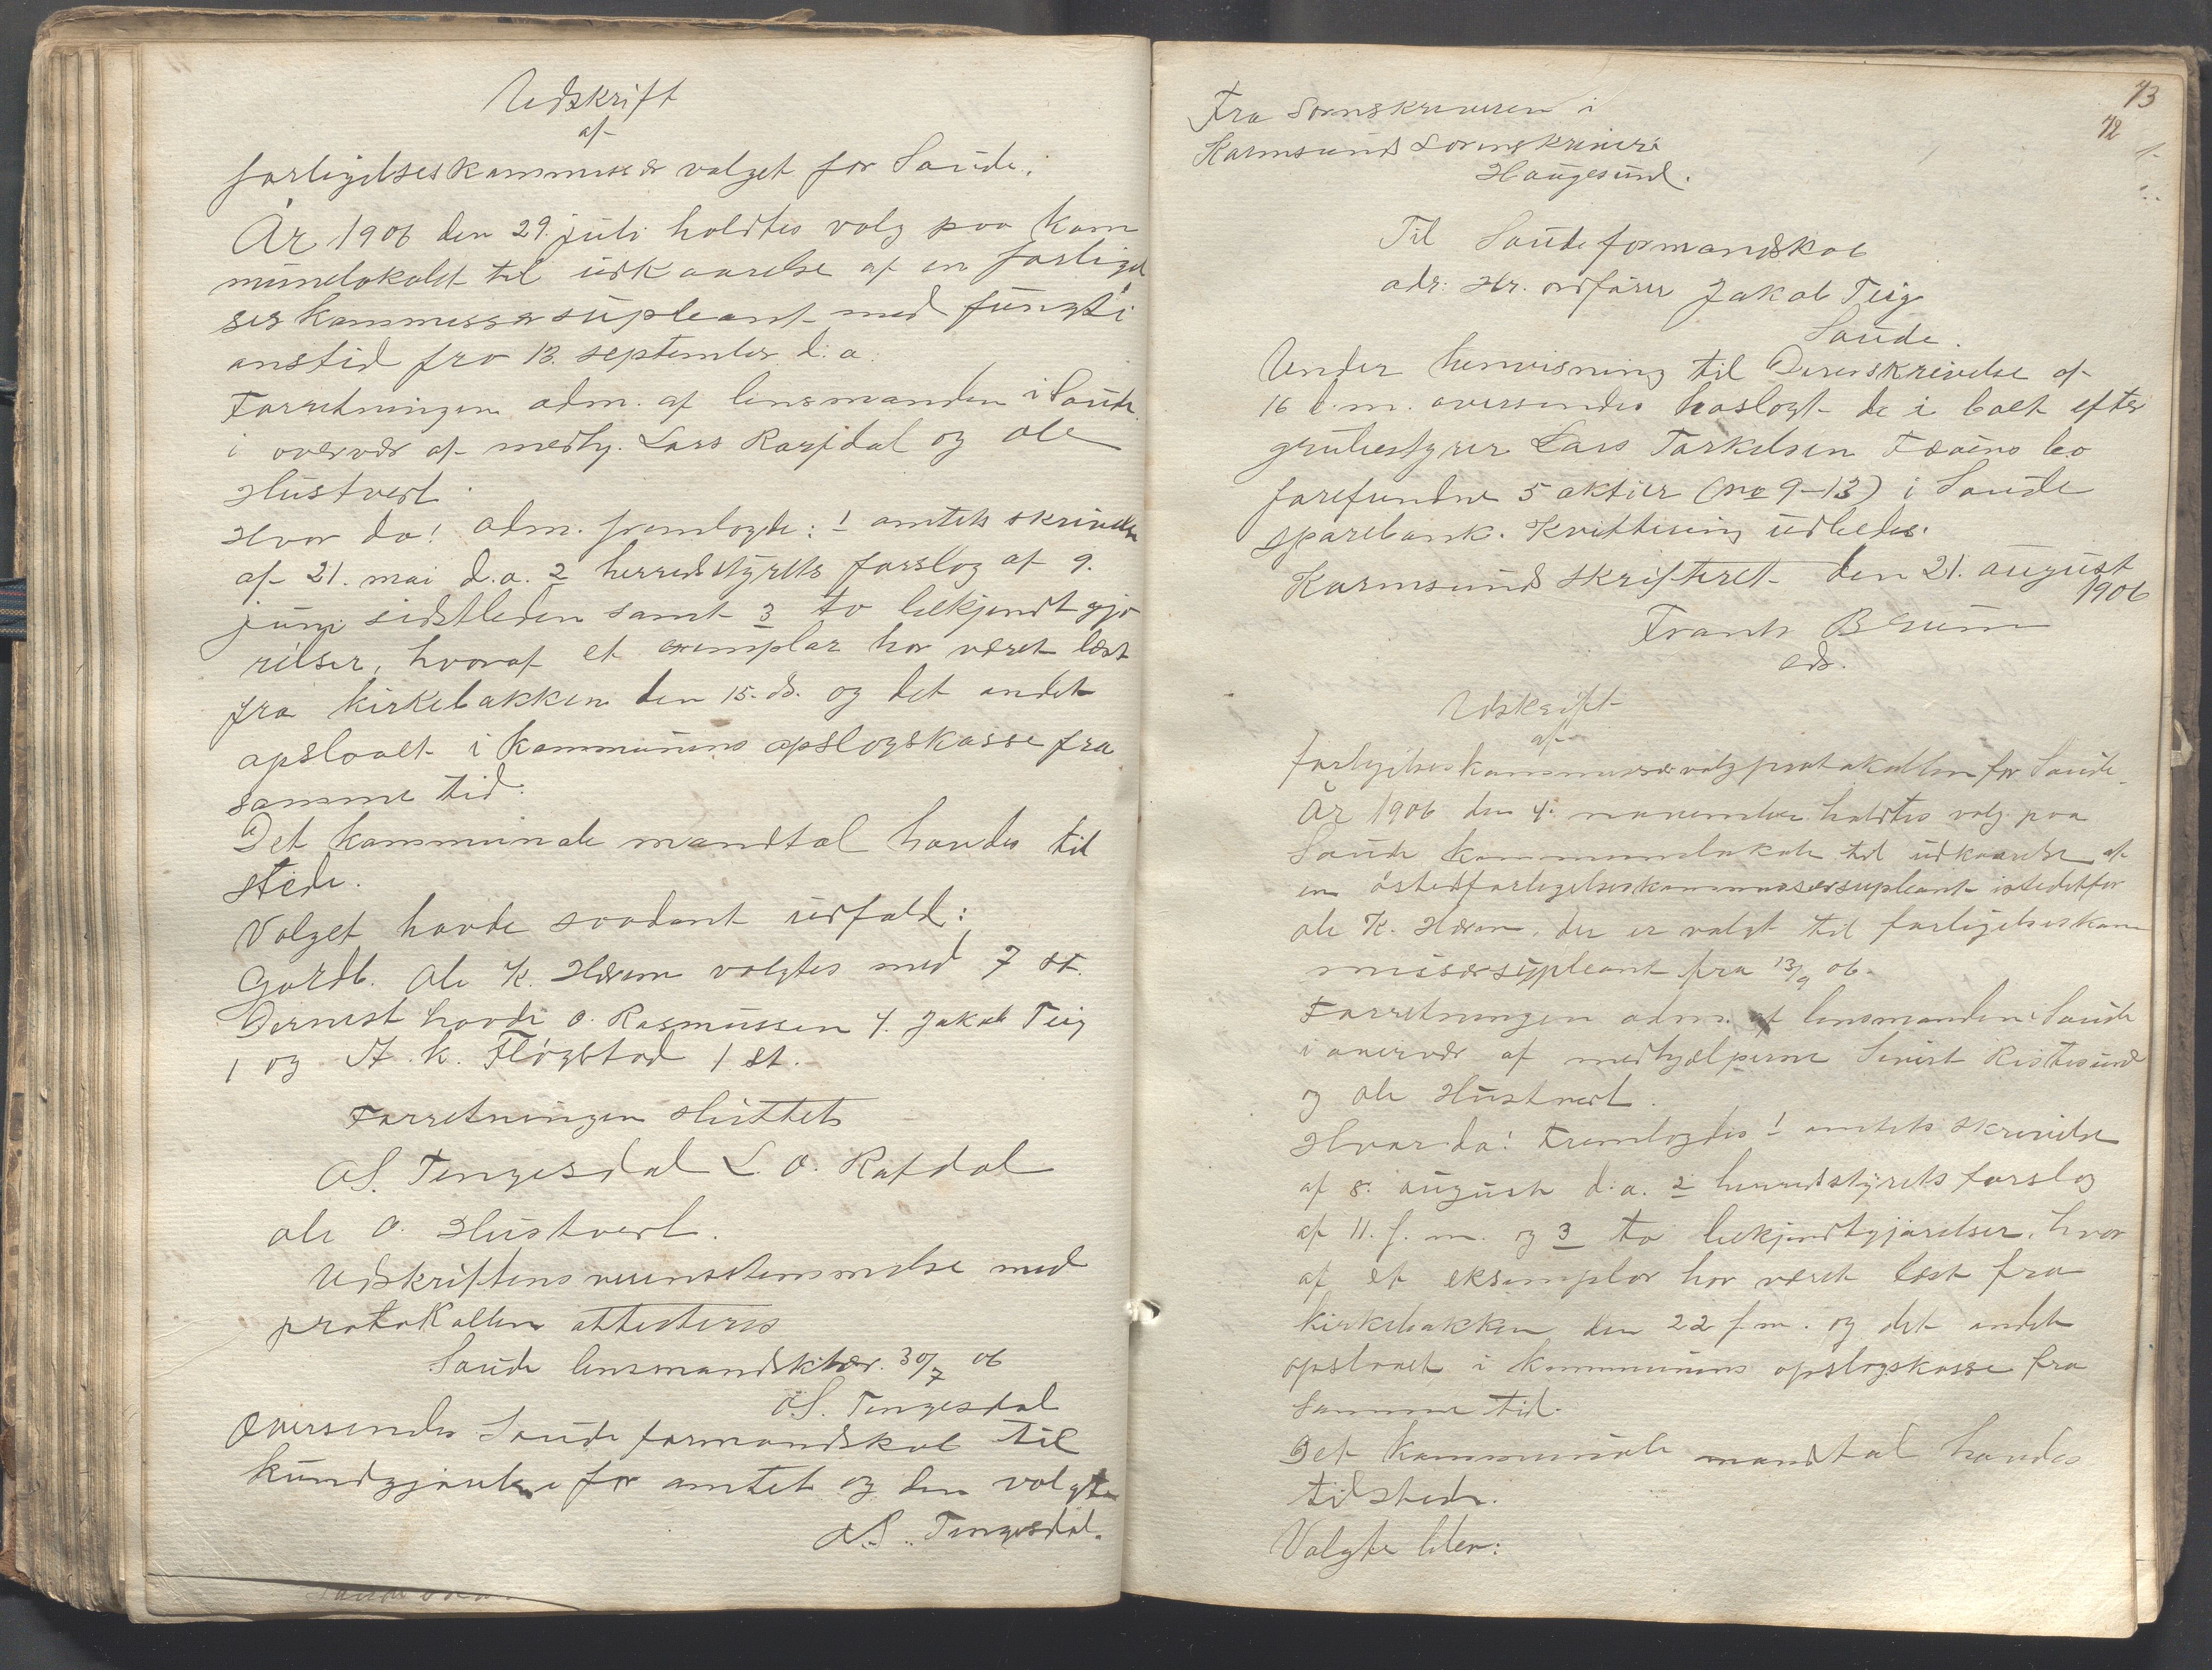 Udskrift
af
forligelseskommissærvalget for Saude.
År 1906 den 29. juli holdtes valg paa kom
munelokalet til udkaarelse af en forligel
seskommissærsupleant med fungti
onstid fra 13. september d: a.
Forretningen adm. af lensmanden i Saude
i overvær af medhj. Lars Rafdal og Ole
Hustvedt.
Hvor da! adm. fremlagde: 1 amtets skrivelse
af 21. mai d.a. 2 herredstyrets forslag af 9.
juni sidstleden samt 3 to bekjendtgjø
relser, hvoraf et exemplar har været læst
fra kirkebakken den 15. ds. og det andet
opslaaet i kommunens opslagskasse fra
samme tid.
Det kommunale mandtal havdes til
stede.
Valget havde saadant udfald:
Gardb. Ole K. Hærem valgtes med 7 st.
Dernest havde O. Rasmussen 4. Jakob Teig
1 og A. K. Fløgstad 1 st.
Forretningen sluttet
AS. Tengesdal L. O. Rafdal
Ole O. Hustvedt.
Udskriftens overensstemmelse med
protokollen attesteres
Saude lensmandsktor. 30/7 06
AS. Tengesdal
Oversendes Saude formandskab til
kundgjørelse for amtet og den valgte
AS. Tengesdal.
73
72
Fra Sorenskriveren i
Karmsund Sorenskriveri
Haugesund.
Til Saude formandskab
adr. Hr. ordfører Jakob Teig
Saude.
Under henvisning til Deres skrivelse af
16 d.m. oversendes hoslagt de i boet efter
grubestyrer Lars Torkelsen Fæøens bo
forefundne 5 aktier (No 9-13) i Saude
sparebank. Kvittering udbedes.
Karmsund skriftret den 21. august
1906
Frantz Bruun
eds.
Udskrift
af
forligelseskommissærvalgprotokollen for Saude.
År 1906 den 4. november holdtes valg paa
Saude kommunelokale til udkaarelse af
en østedforligelseskommissærsupleant istedetfor
Ole K. Hærem, der er valgt til forligelseskom
missærsupleant fra 13/9 06.
Forretningen adm. af lensmanden i Saude
i overvær af medhjælperne Sivert Ristesund
og Ole Hustvedt.
Hvor da! Fremlagdes 1 amtets skrivelse
af 8. august d:a. 2 herredstyrets forslag
af 11. f. m. og 3 to bekjendtgjørelser, hvor
af et eksemplar har været læst fra
kirkebakken den 22 f.m. og det andet
opslaaet i kommunens opslagskasse fra
samme tid.
Det kommunale mandtal havdes
tilstede.
Valgte blev: